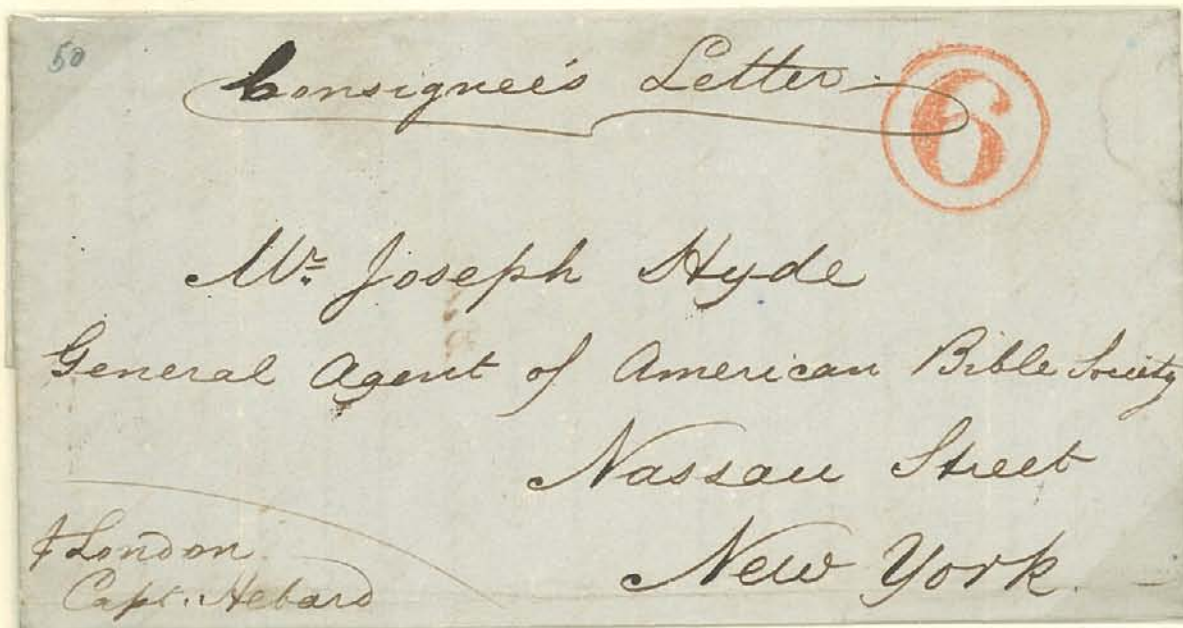 50
Consignee's Letter
6
Mr. Joseph Hyde
General Agent of American Bible Society
Nassau Street
New York.
London
Capt. Hebard